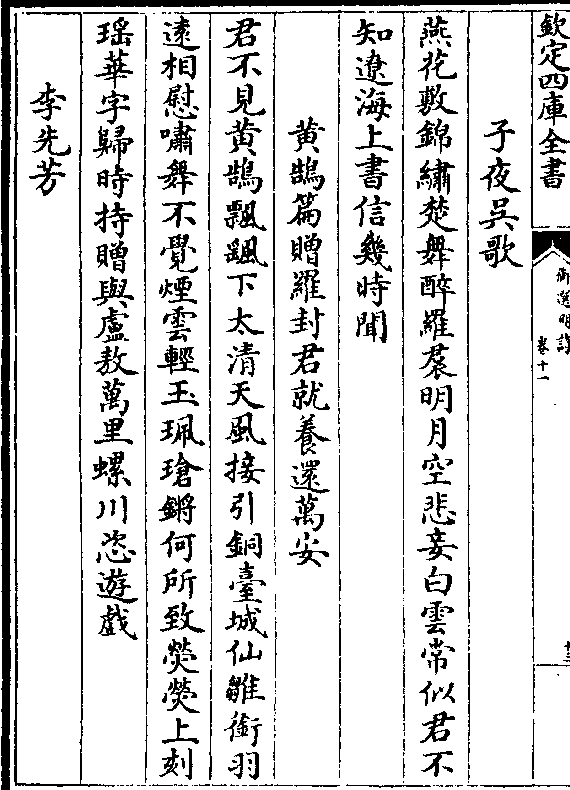 欽定四庫全書
御選明詩
卷十一
十三
子夜吳歌
燕花敷錦繡楚舞醉羅裠明月空悲妾白雲常似君不
知遼海上書信幾時聞
黃鵠篇贈羅封君就養還萬安
君不見黃鵠飄颻下太清天風接引銅臺城仙雛銜羽
遠相慰嘯舞不覺煙雲輕玉珮瑲鏘何所致熒熒上刻
瑶華字歸時持贈與盧敖萬里螺川恣遊戲
李先芳